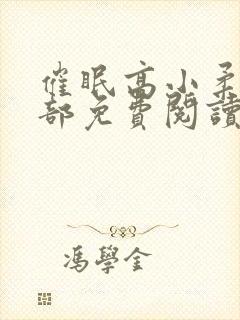 催眠高小柔
部免費閱讀
馮學金